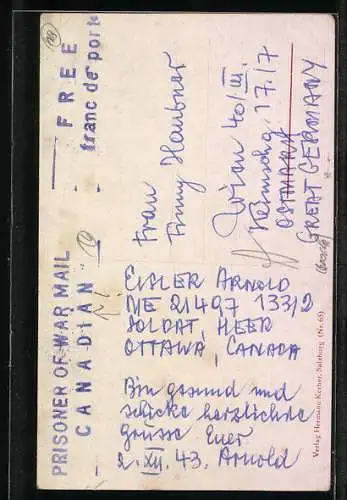 PRISONER OF WAR MAIL
- CANADIAN -
- FREE -
franc de port
Frau
Fanny Haubner
Wien 40/III.
17/7
OSTMARK
GREAT GERMANY
EISLER ARNOLD
ME 21497 133/2
SOLDAT, HEER
OTTAWA, CANADA
Bin gesund und
schicke herzlichste
Grüsse Euer
2. XII. 43. Arnold
Verlag Hermann Kerber, Salzburg (Nr. 65)